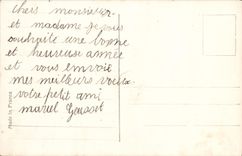 chers monsieur
et madame je vous
souhaite une bonne
et heureuse année
et vous envoie
mes meilleurs voeux
votre petit ami
marcel
Made in France